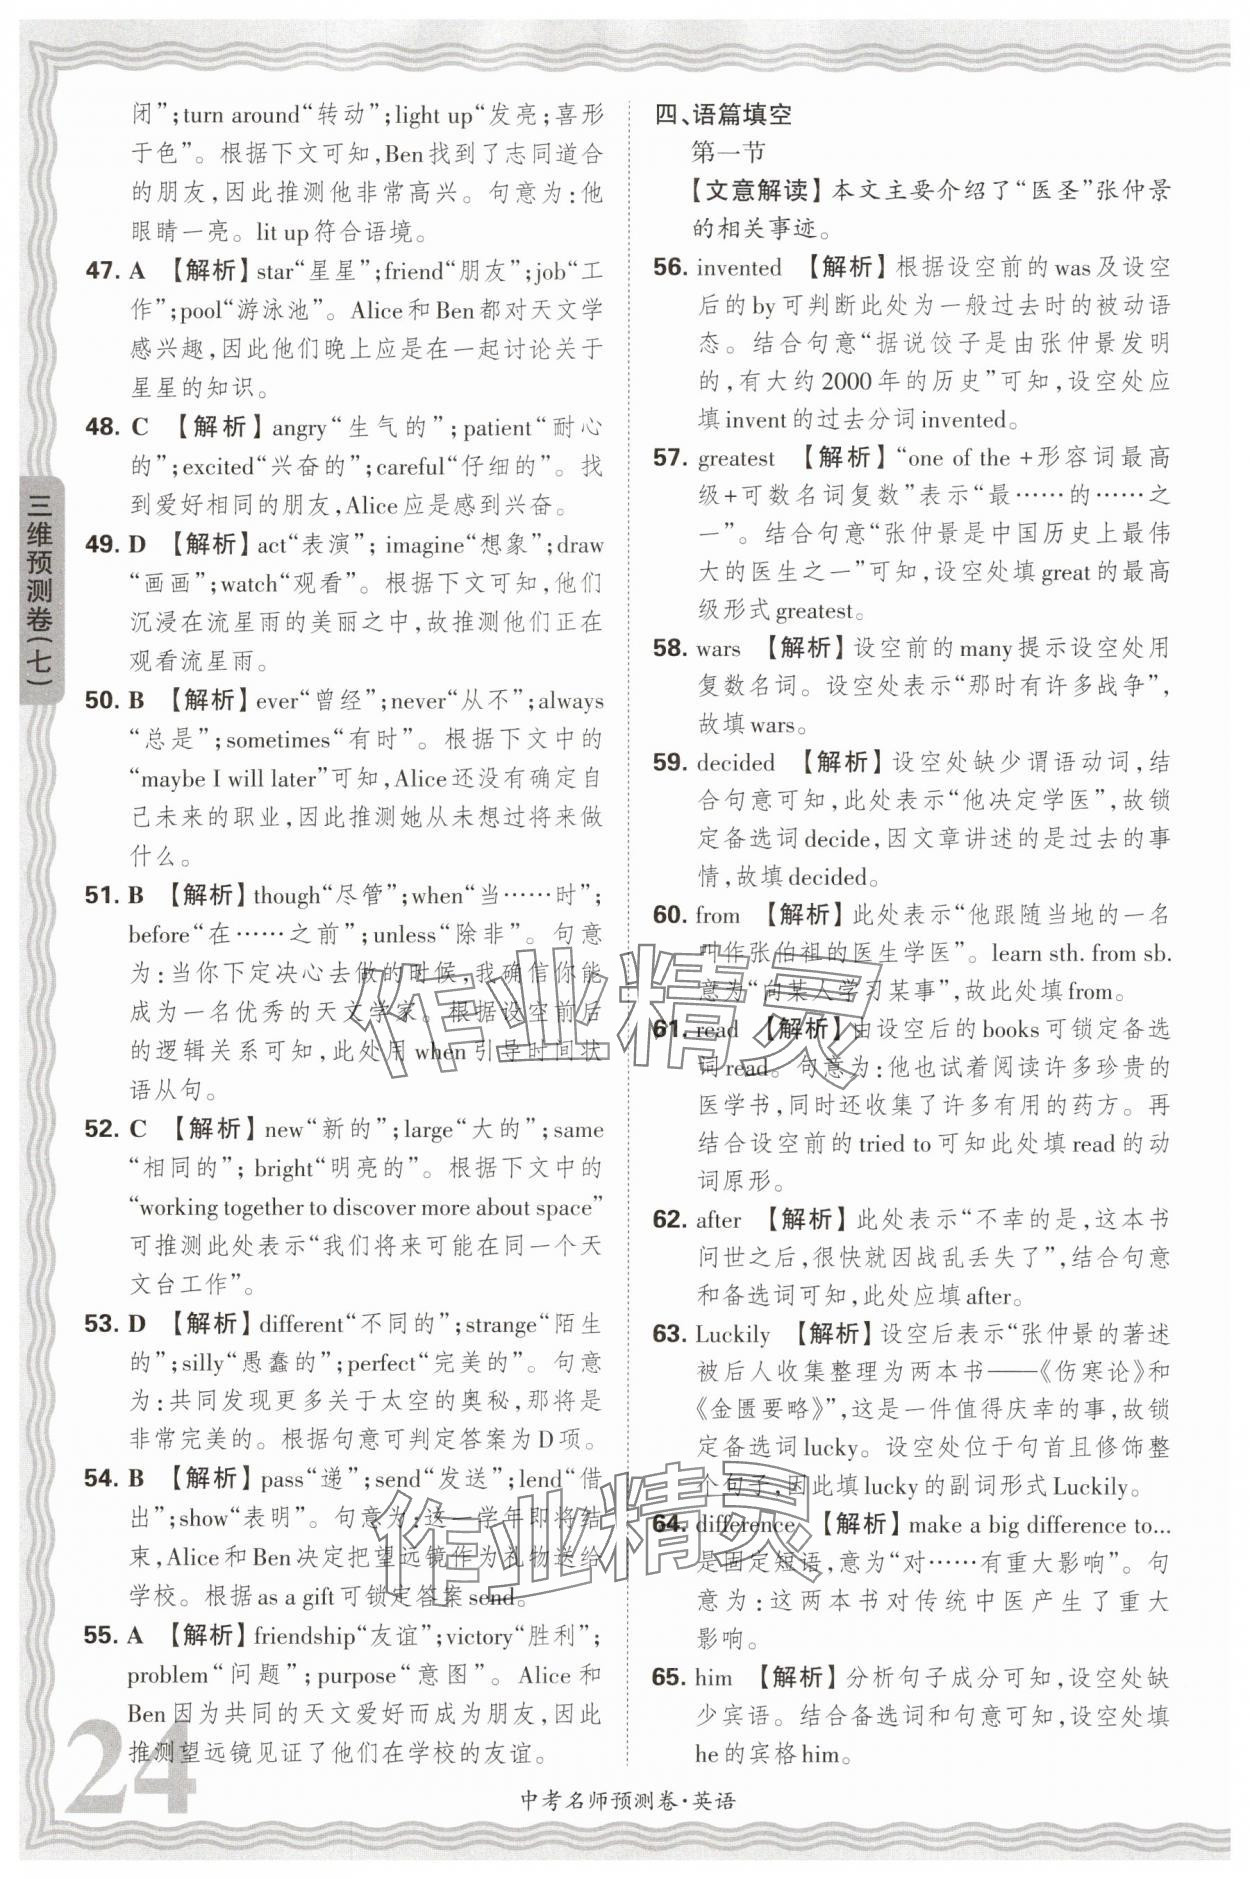 闭”;turn around“转动”;light up“发亮;喜形
于色”。根据下文可知,Ben找到了志同道合
的朋友,因此推测他非常高兴。句意为:他
眼睛一亮。lit up符合语境。
47. A 【解析】star“星星”;friend“朋友”;job“工
作”;pool“游泳池”。Alice和Ben都对天文学
感兴趣,因此他们晚上应是在一起讨论关于
星星的知识。
48. C 【解析】angry“生气的”;patient“耐心
的”;excited“兴奋的”;careful“仔细的”。找
到爱好相同的朋友,Alice应是感到兴奋。
49. D 【解析】act“表演”; imagine“想象”;draw
“画画”;watch“观看”。根据下文可知,他们
沉浸在流星雨的美丽之中,故推测他们正在
观看流星雨。
50. B 【解析】ever“曾经”;never“从不”;always
“总是”;sometimes“有时”。根据下文中的
“maybe I will later”可知,Alice还没有确定自
己未来的职业,因此推测她从未想过将来做
什么。
51. B 【解析】though“尽管”;when“当……时”;
before“在……之前”;unless“除非”。句意
为:当你下定决心去做的时候,我确信你能
成为一名优秀的天文学家。根据设空前后
的逻辑关系可知,此处用when引导时间状
语从句。
52. C 【解析】new“新的”;large“大的”;same
“相同的”; bright“明亮的”。根据下文中的
“working together to discover more about space”
可推测此处表示“我们将来可能在同一个天
文台工作”。
53. D 【解析】different“不同的”;strange“陌生
的”;silly“愚蠢的”;perfect“完美的”。句意
为:共同发现更多关于太空的奥秘,那将是
非常完美的。根据句意可判定答案为D项。
54. B 【解析】pass“递”;send“发送”;lend“借
出”;show“表明”。句意为:这一学年即将结
束,Alice和Ben决定把望远镜作为礼物送给
学校。根据as a gift可锁定答案send。
55. A 【解析】friendship“友谊”;victory“胜利”;
problem“问题”;purpose“意图”。Alice和
Ben因为共同的天文爱好而成为朋友,因此
推测望远镜见证了他们在学校的友谊。
四、语篇填空
第一节
【文意解读】本文主要介绍了“医圣”张仲景
的相关事迹。
56. invented 【解析】根据设空前的was及设空
后的by可判断此处为一般过去时的被动语
态。结合句意“据说饺子是由张仲景发明
的,有大约2000年的历史”可知,设空处应
填invent的过去分词invented。
57. greatest 【解析】“one of the +形容词最高
级+可数名词复数”表示“最……的……之
一”。结合句意“张仲景是中国历史上最伟
大的医生之一”可知,设空处填great的最高
级形式greatest。
58. wars 【解析】设空前的many提示设空处用
复数名词。设空处表示“那时有许多战争”,
故填wars。
59. decided 【解析】设空处缺少谓语动词,结
合句意可知,此处表示“他决定学医”,故锁
定备选词decide,因文章讲述的是过去的事
情,故填decided。
60. from 【解析】此处表示“他跟随当地的一名
叫作张伯祖的医生学医”。learn sth. from sb.
意为“向某人学习某事”,故此处填from。
61. read 【解析】由设空后的books可锁定备选
词read。句意为:他也试着阅读许多珍贵的
医学书,同时还收集了许多有用的药方。再
结合设空前的tried to可知此处填read的动
词原形。
62. after 【解析】此处表示“不幸的是,这本书
问世之后,很快就因战乱丢失了”,结合句意
和备选词可知,此处应填after。
63. Luckily 【解析】设空后表示“张仲景的著述
被后人收集整理为两本书——《伤寒论》和
《金匮要略》”,这是一件值得庆幸的事,故锁
定备选词lucky。设空处位于句首且修饰整
个句子,因此填lucky的副词形式Luckily。
64. difference 【解析】make a big difference to...
是固定短语,意为“对……有重大影响”。句
意为:这两本书对传统中医产生了重大
影响。
65. him 【解析】分析句子成分可知,设空处缺
少宾语。结合备选词和句意可知,设空处填
he的宾格him。
三维预测卷(七)
24
中考名师预测卷·英语
作业精灵
作业精灵